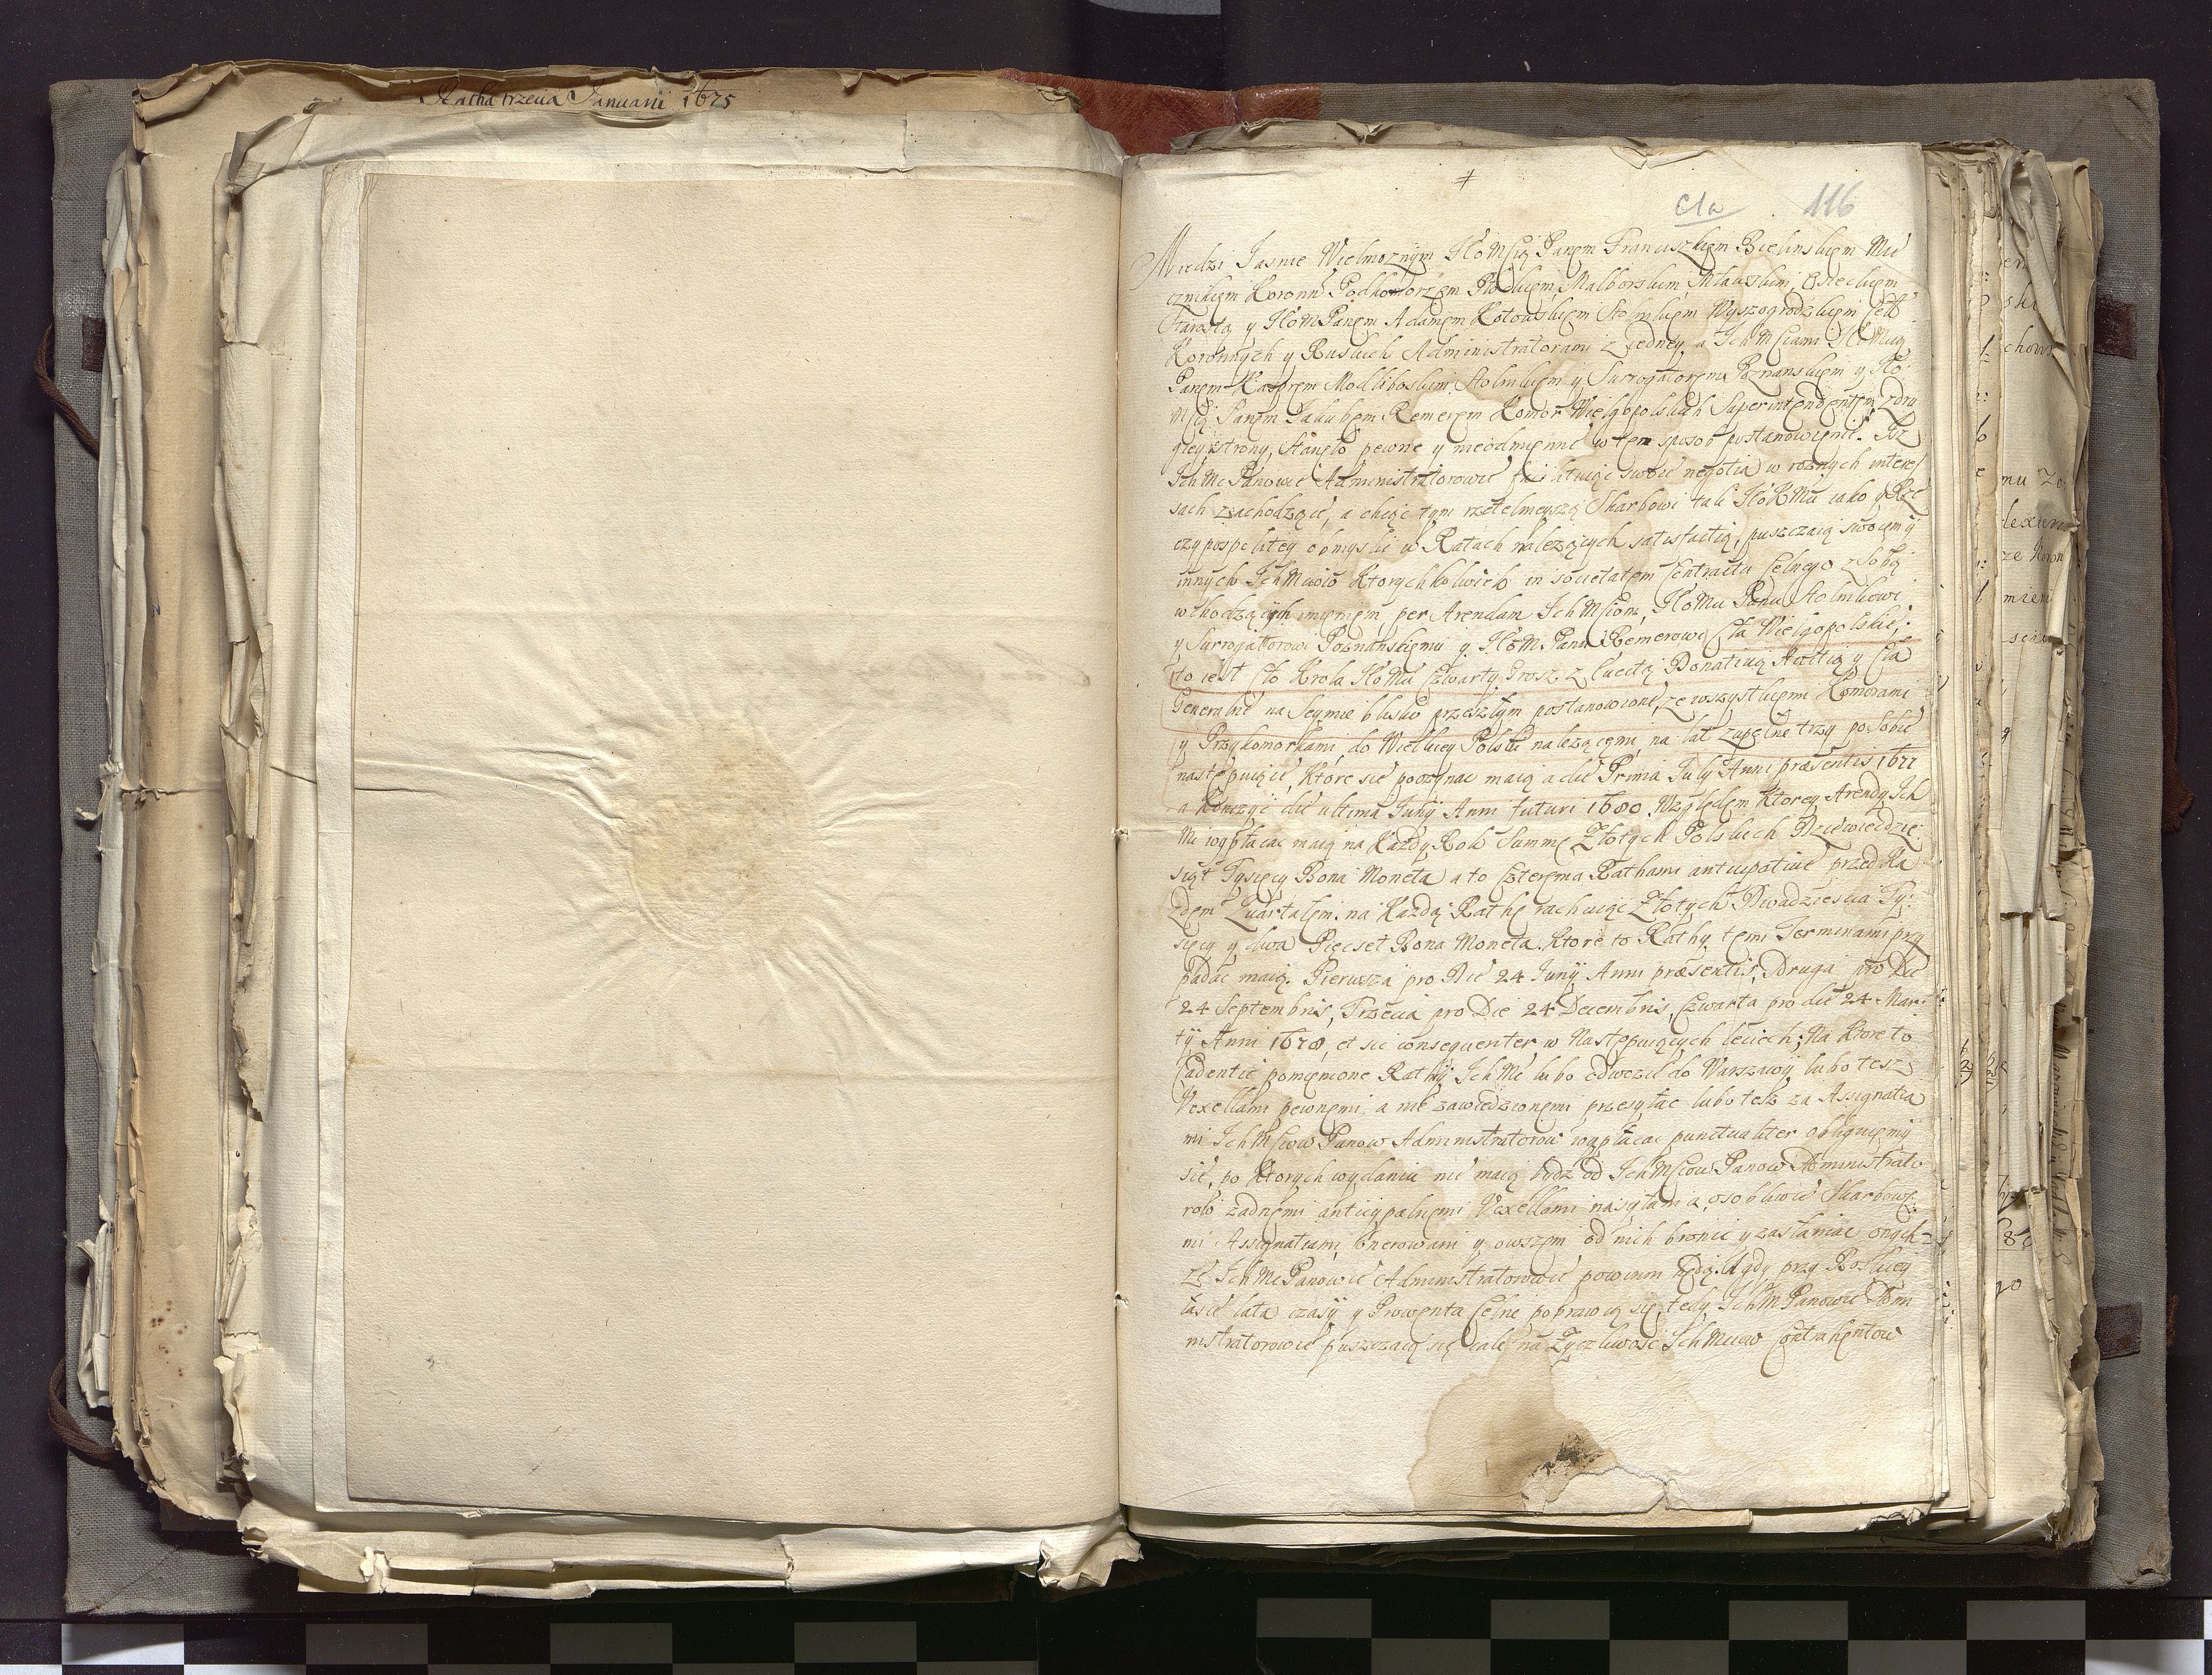 Ratha trzecia Januarii 1675
Cła 116
Miedzi Jasnie Wielmoznÿm JEo Mscią Panem Franciszkiem Bielinskiem Mie
cznikiem Koronn Podkomorzem Płockiem Malborskim, Mławskim, Osieckiem
Starostą y JEo M Panem Adamem Kotowskiem Stolnikiem Wyszogrodzkiem Ceł
Koronnych y Ruskich Administratorami z iedney, a Ich Msciami JEo Mcią
Panem Kasprem Modliboskim Stolnikiem y Surrogatorem Poznanskiem y JEo
Mcią Panem Jakubem Remerem Komor Wielgopolskich Superintendentem, zdru
giey strony, stanęło pewne y nieodmienne w ten sposob postanowienie. Isz
Ich Mc Panowie Administratorowie swoie negotia w roznych interes
sach zachodzące, a chcąc tym rzetelnieyszą Skarbowi tak JEo K Mci iako y Rze
czypospolitey obmyslic w Ratach nalezących satisfactią, puszczaią swoiem y
innych Ich Mciow Ktorychkolwiek in societatem Contractu Celnego z sobą
wchodzących imieniem, per Arendam Ich Msciom, JEo Mci Panu Stolnikowi
y Surrogatorowi Poznanskiemu y JEo M Panu Remerowi Cła Wielgopolskie,
to iest Cło Krola JEo Mci Czwarty Grosz z Evectą Donativą Auctią y Cła
Generalne na Seymie blisko przeszłym postanowione, ze wszystkiemi Komorami
y Przykomorkami do Wielkiey Polski nalezącemi, na lat zupełne trzy po sobie
nastepuiące, Ktore się poczynac maią a die Prima July Anni præsentis 1677
a Konczyc die ultima Junÿ Anni futuri 1680. Względem Ktorey Arendy Ich
Mc wypłacac maią na Kazdy Rok Summę Złotych Polskich Dziewiędzie
siąt Tysięcy Bona Moneta a to Czterema Rathami anticipative przed Ka
zdem Quartałem na Kazdą Rathę rachuiąc Złotych Dwadziescia Ty
sięcy y dwa Pięcset Bona Moneta. Ktore to Rathy temi Terminami przy
padac maią. Pierwsza pro Die 24 Junÿ Anni præsentis, Druga pro Die
24 Septembris, Trzecia pro Die 24 Decembris, Czwarta pro die 24 Mar
tÿ Anni 1678, et sic consequenter w Następuiących leciech; Na Ktore to
Cadentie pomienione Rathÿ Ich Mc lubo odwozic do Warszawÿ lubo tesz
Vexellami pewnemi a nie zawiedzionemi przesyłac lubo tesz za Assignatia
mi Ich Msciow Panow Administratorow wypłacac punctualiter obliguiemÿ
się, po Ktorych wydaniu nie maią bydz od Ich Msciow Panow Administrato
row zadnemi anticypalnemi Vexellami nasyłani a osobliwie Skarbowe
mi Assignatiami onerowani y owszem od nich bronic y zasłaniac onych
ze Ich Mc Panowie Administratorowie powinni będą. A gdy przy Boskiey
łasce lata czasÿ y Prowenta Celne poprawią się, tedy Ich M Panowie Admi
nistratorowie puszczaią się cale na Zyczliwosc Ich Mciow Contrahentow